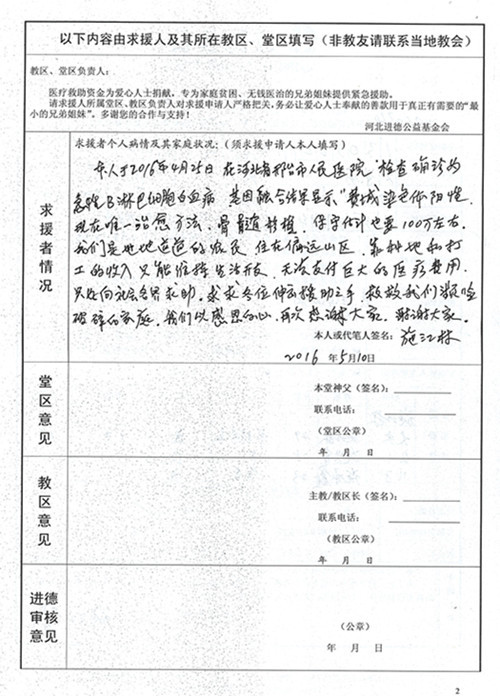 以下内容由求援人及其所在教区、堂区填写（非教友请联系当地教会）
教区、堂区负责人：
医疗救助资金为爱心人士捐献，专为家庭贫困、无钱医治的兄弟姐妹提供紧急援助。
请求援人所属堂区、教区负责人对求援申请人严格把关，务必让爱心人士奉献的善款用于真正有需要的“最
小的兄弟姐妹”。多谢您的合作与支持！
河北进德公益基金会
求援者情况
求援者个人病情及其家庭状况：（须求援申请人本人填写）
本人于2016年4月25日在河北省邢台市人民医院 检查确诊为
急性B淋巴细胞白血病 基因融合结果显示“费城染色体阳性，
现在唯一治愈方法，骨髓移植，保守估计也要100万左右。
我们是地地道道的农民 住在偏远山区，靠种地和打
工的收入只能维持生活开支，无法支付巨大的医疗费用，
只能向社会各界求助。求求各位伸出援助之手，救救我们濒临
破碎的家庭。我们以感恩的心，再次感谢大家，谢谢大家。
本人或代笔人签名：施江林
2016 年 5月10日
堂区意见
本堂神父（签名）：
联系电话：
（堂区公章）
年 月 日
教区意见
主教/教区长（签名）：
联系电话：
（教区公章）
年 月 日
进德审核意见
（公章）
年 月 日
2